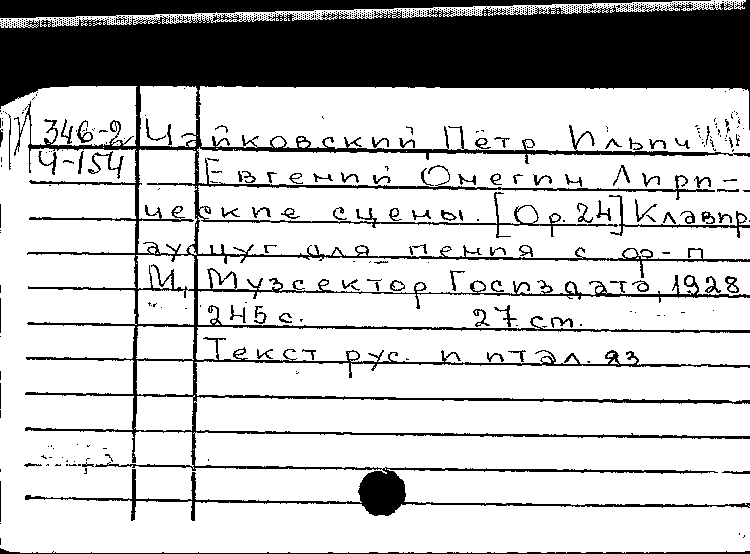 346-2 Чайковский, Пётр Ильич
Ч-154 Евгений Онегин Лири-
ческие сцены. [Op. 24] Клавир
аусцуг для пения с фр-п
М., Музсектор Госиздата, 1928
245 с. 27 cm.
Текст рус. и итал. яз